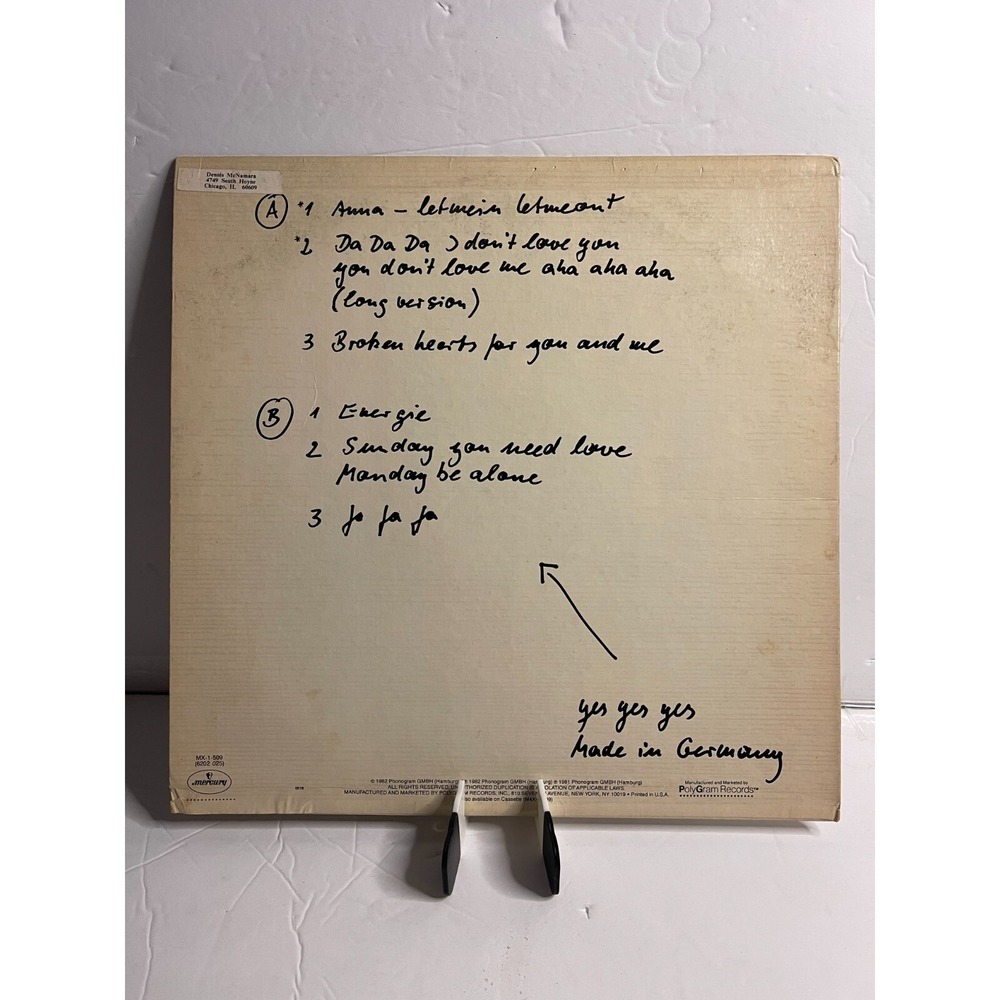 Dennis McNamara
4749 South Hoyne
Chicago, IL 60609
A *1 Anna – letmein letmeout
*2 Da Da Da I don't love you
you don't love me aha aha aha
(long version)
3 Broken hearts for you and me
B 1 Energie
2 Sunday you need love
Monday be alone
3 Ja Ja Ja
yes yes yes
Made in Germany
MX-1-509
(6202 025)
mercury
© 1982 Phonogram GMBH (Hamburg) 1982 Phonogram GMBH ℗ 1981 Phonogram GMBH (Hamburg)
ALL RIGHTS RESERVED. DUPLICATION IS A VIOLATION OF APPLICABLE LAWS.
MANUFACTURED AND MARKETED BY POLYGRAM RECORDS, INC., 810 SEVENTH AVENUE, NEW YORK, NY 10019 • Printed in U.S.A.
also available on Cassette
Manufactured and Marketed by
PolyGram Records™